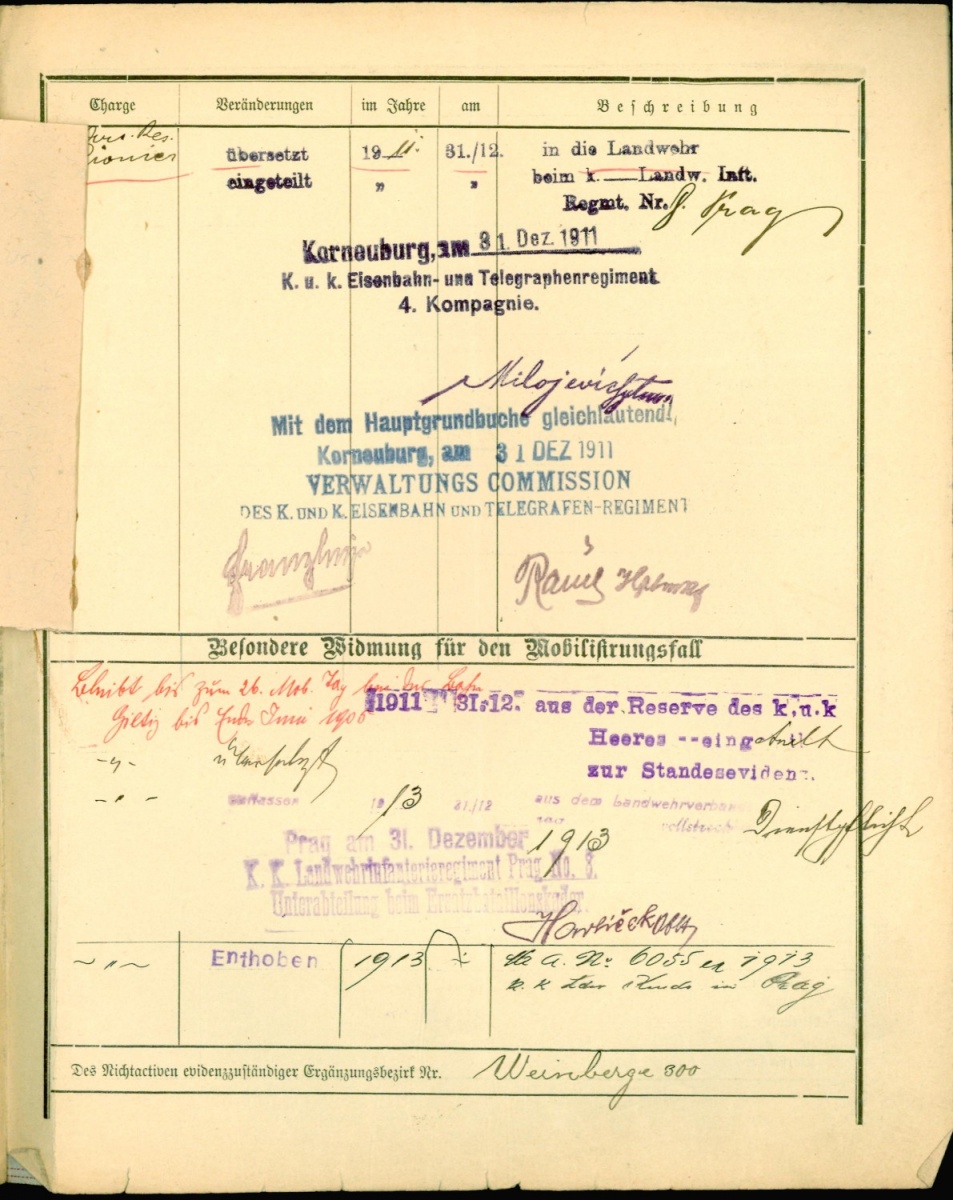 Charge Veränderungen im Jahre am Beschreibung
Res.
Pionier
übersetzt 1911. 31./12. in die Landwehr
eingeteilt " " beim k. Landw. Inft.
Regmt. Nr. 8. Prag
Korneuburg, am 31. Dez. 1911
K. u. k. Eisenbahn- und Telegraphenregiment
4. Kompagnie.
Milojević
Mit dem Hauptgrundbuche gleichlautend!
Korneuburg, am 31 DEZ 1911
VERWALTUNGS COMMISSION
DES K. UND K. EISENBAHN UND TELEGRAFEN-REGIMENT
Besondere Widmung für den Mobilisirungsfall
Bleibt bis zum 26. Mob. Tag bei der Bahn
Giltig bis Ende Juni 1906
1911 31.12. aus der Reserve des k.u.k
Heeres --eingeteilt
zur Standesevidenz.
-"- übersetzt
-"- entlassen 1913 31/12 aus dem Landwehrverbande
vollstreckt Dienstpflicht
Prag am 31. Dezember 1913
K. K. Landwehrinfanterieregiment Prag No. 8.
Unterabteilung beim Ersatzbataillonskader.
Havliček Oblt
~"~ Enthoben 1913 M. A. No 6055 ex 1913
k. k. in Prag
Des Nichtactiven evidenzzuständiger Ergänzungsbezirk Nr. Weinberge 300